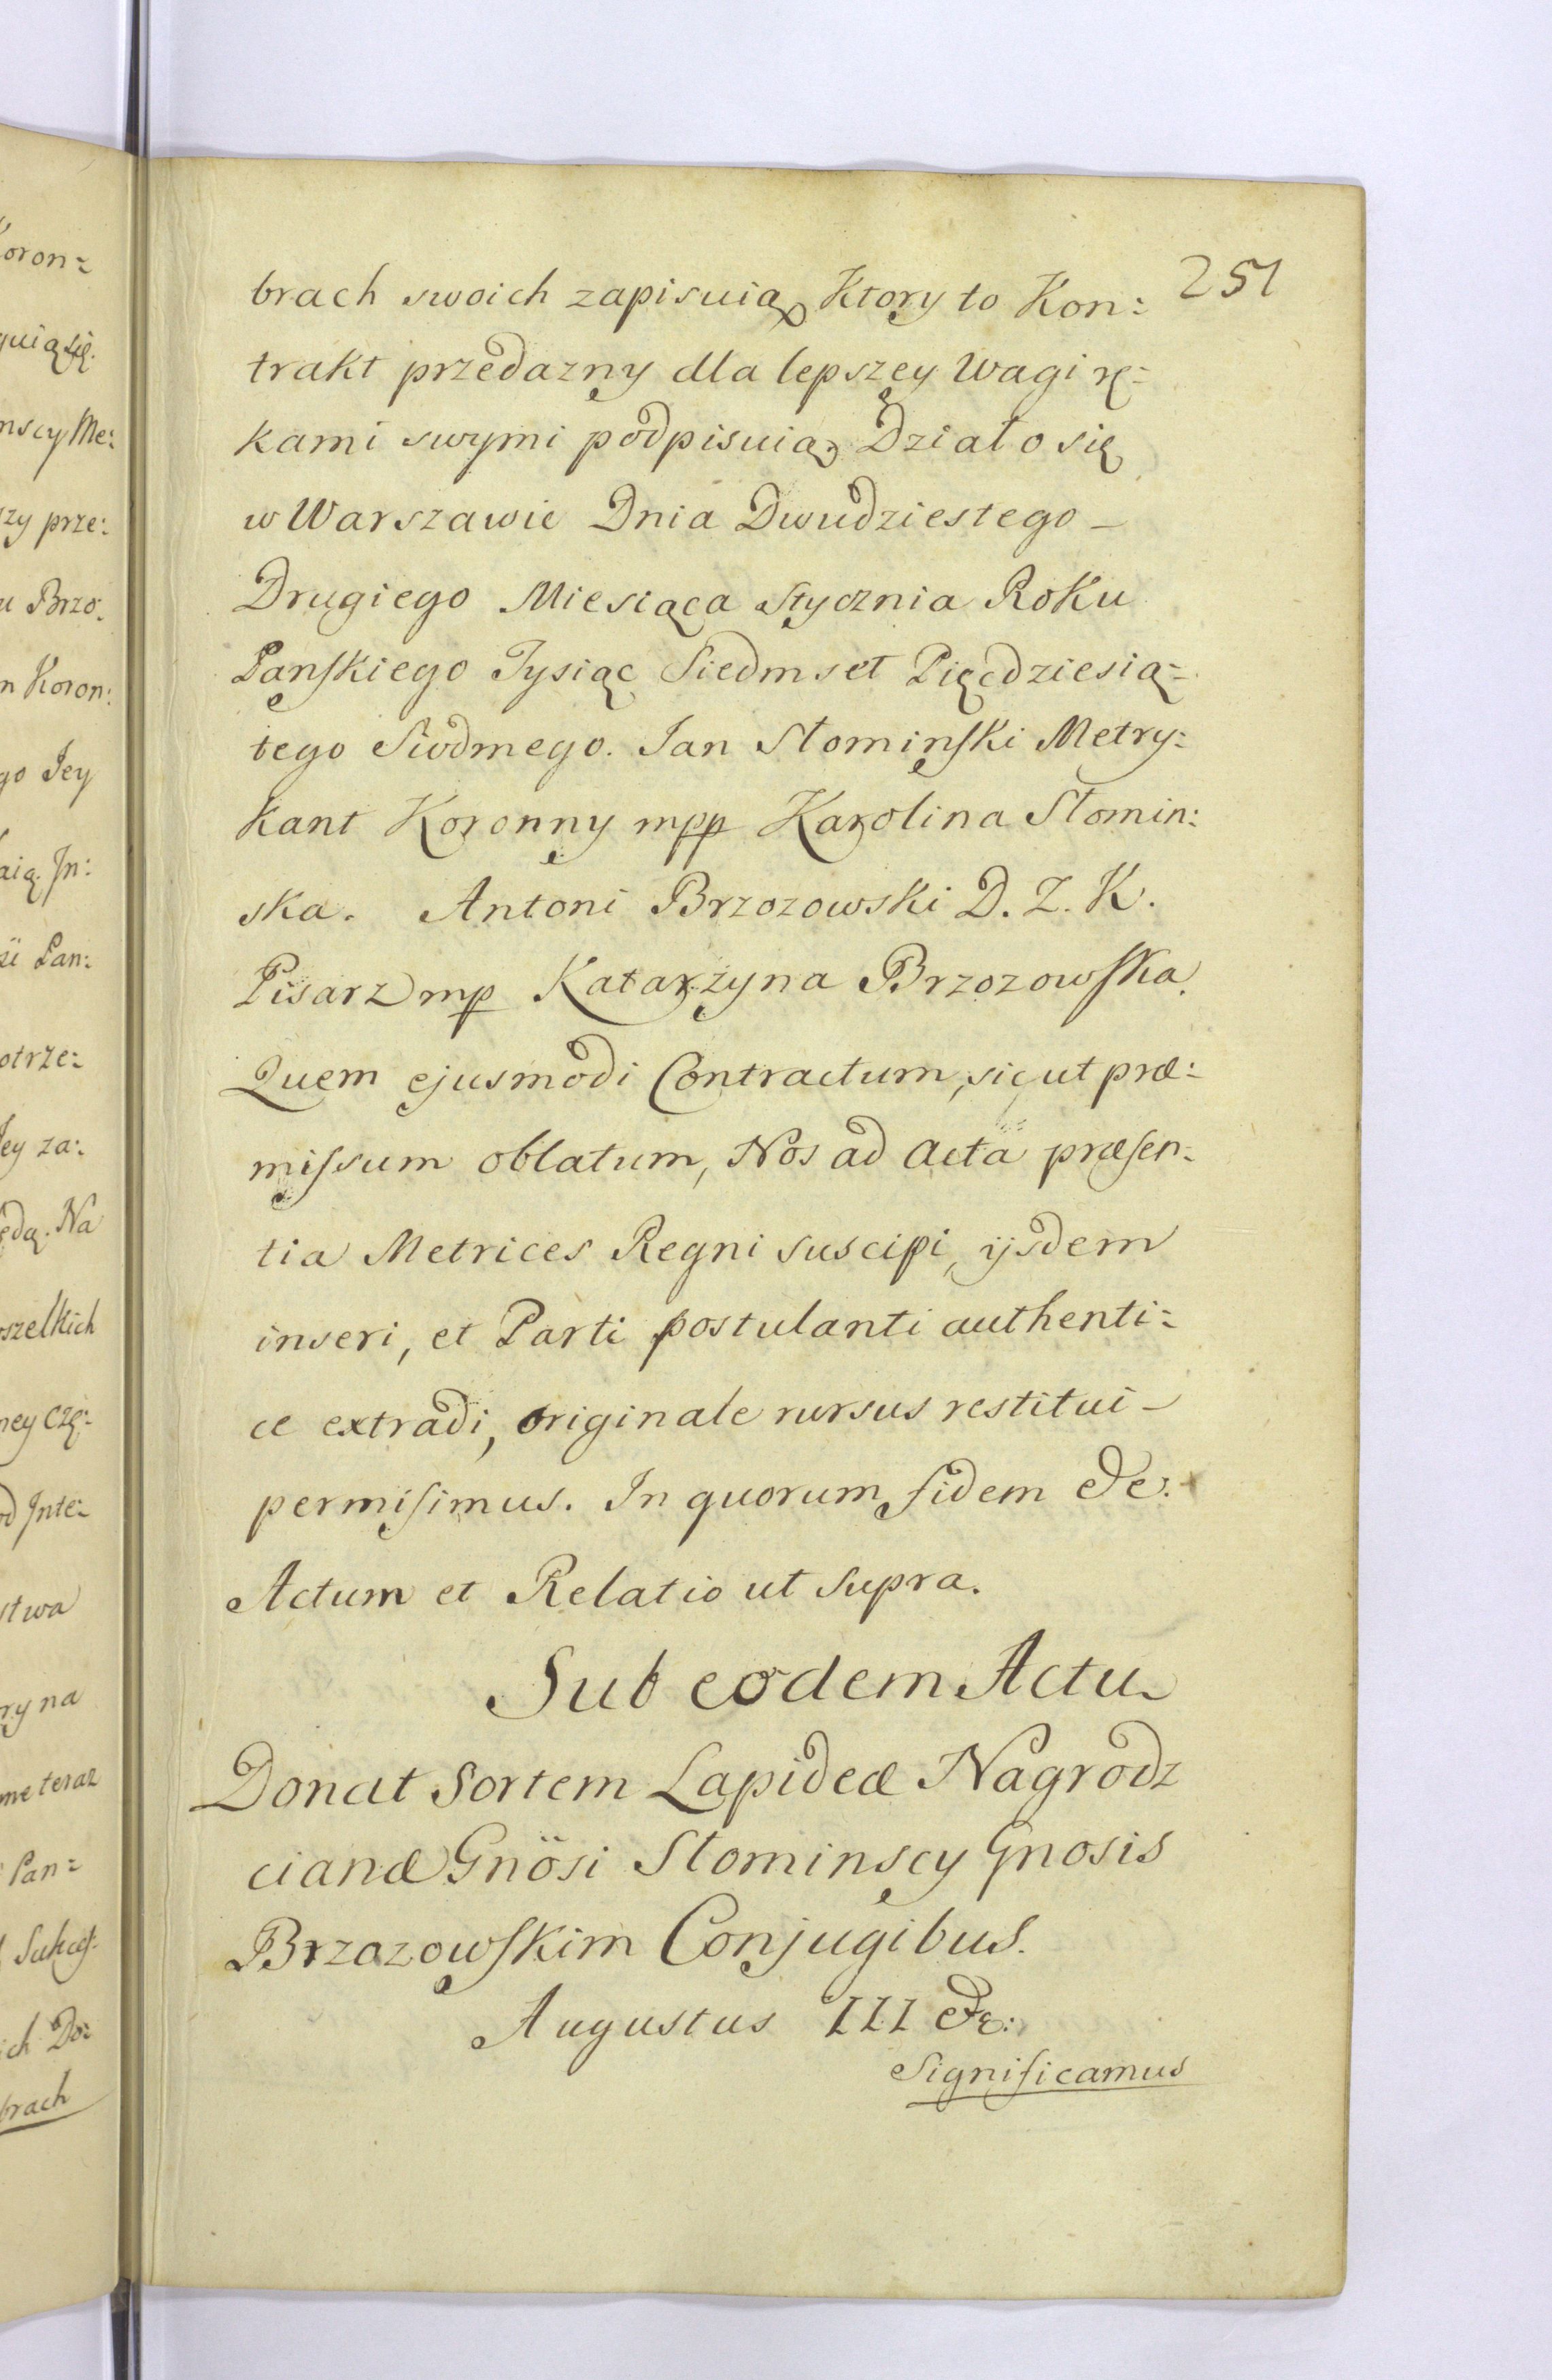 251
brach swoich zapisuią, Ktory to Kon:
trakt przedazny dla lepszey Wagi rę=
kami swymi podpisuią, Działo się
w Warszawie Dnia Dwudziestego –
Drugiego Miesiąca Stycznia Roku
Panskiego Tysiąc Siedmset Pięćdziesią=
tego Siodmego. Jan Słominski Metry:
kant Koronny mpp Karolina Słomin:
ska. Antoni Brzozowski D. Z. K.
Pisarz mp Katarzyna Brzozowska.
Quem ejusmodi Contractum, sicut præ:
missum oblatum, Nos ad Acta præsen:
tia Metrices Regni suscipi, ijsdem
inseri, et Parti postulanti authenti=
ce extradi, originale rursus restitui –
permisimus. In quorum fidem &c:
Actum et Relatio ut supra.
Sub eodem Actu
Donat Sortem Lapideæ Nagrodz
cianæ Gnösi Słominscy Gnosis
Brzozowskim Conjugibus.
Augustus III &c:
Significamus
oron=
nscy Me:
zy prze:
u Brzo:
n Koron:
go Jey
aią. Jn:
Pan:
otrze=
ey za:
ędą. Na
szelkich
ney Czę:
Jnte=
stwa
ry na
me teraz
Pan=
Sukces:
ich Do:
brach